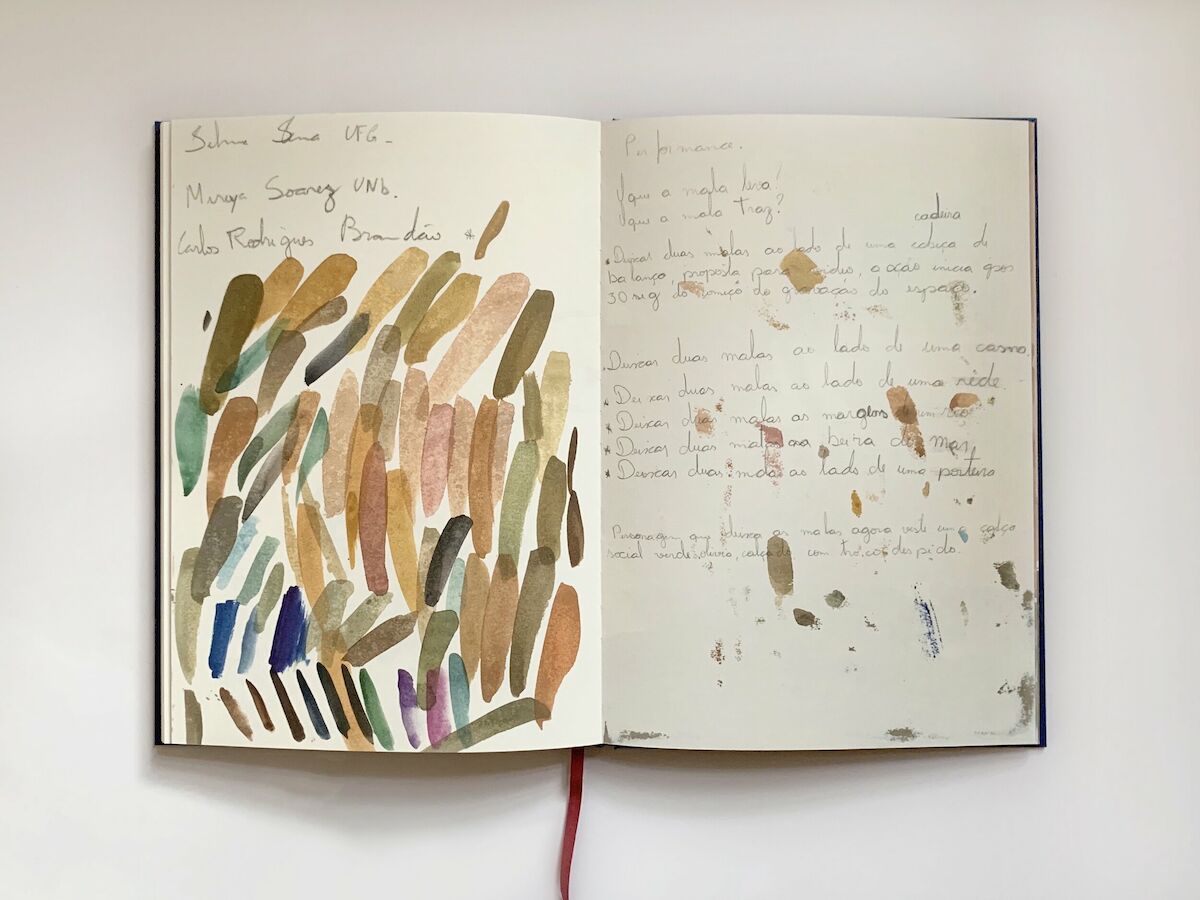 Selma Sena UFG -
Mireya Soarez UNb.
Carlos Rodrigues Brandão *
Performance.
O que a mala leva?
O que a mala traz?
cadeira
Deixar duas malas ao lado de uma cabeça de
balanço, proposta para vídeo, a ação inicia após
30 seg do começo da gravação do espaço.
Deixar duas malas ao lado de uma cama.
Deixar duas malas ao lado de uma rede.
* Deixar duas malas as margens de um rio
* Deixar duas malas na beira do mar
* Deixar duas malas ao lado de uma porteira
Personagem que deixa as malas agora veste uma calça
social verde oliva, calçado com tronco despido.